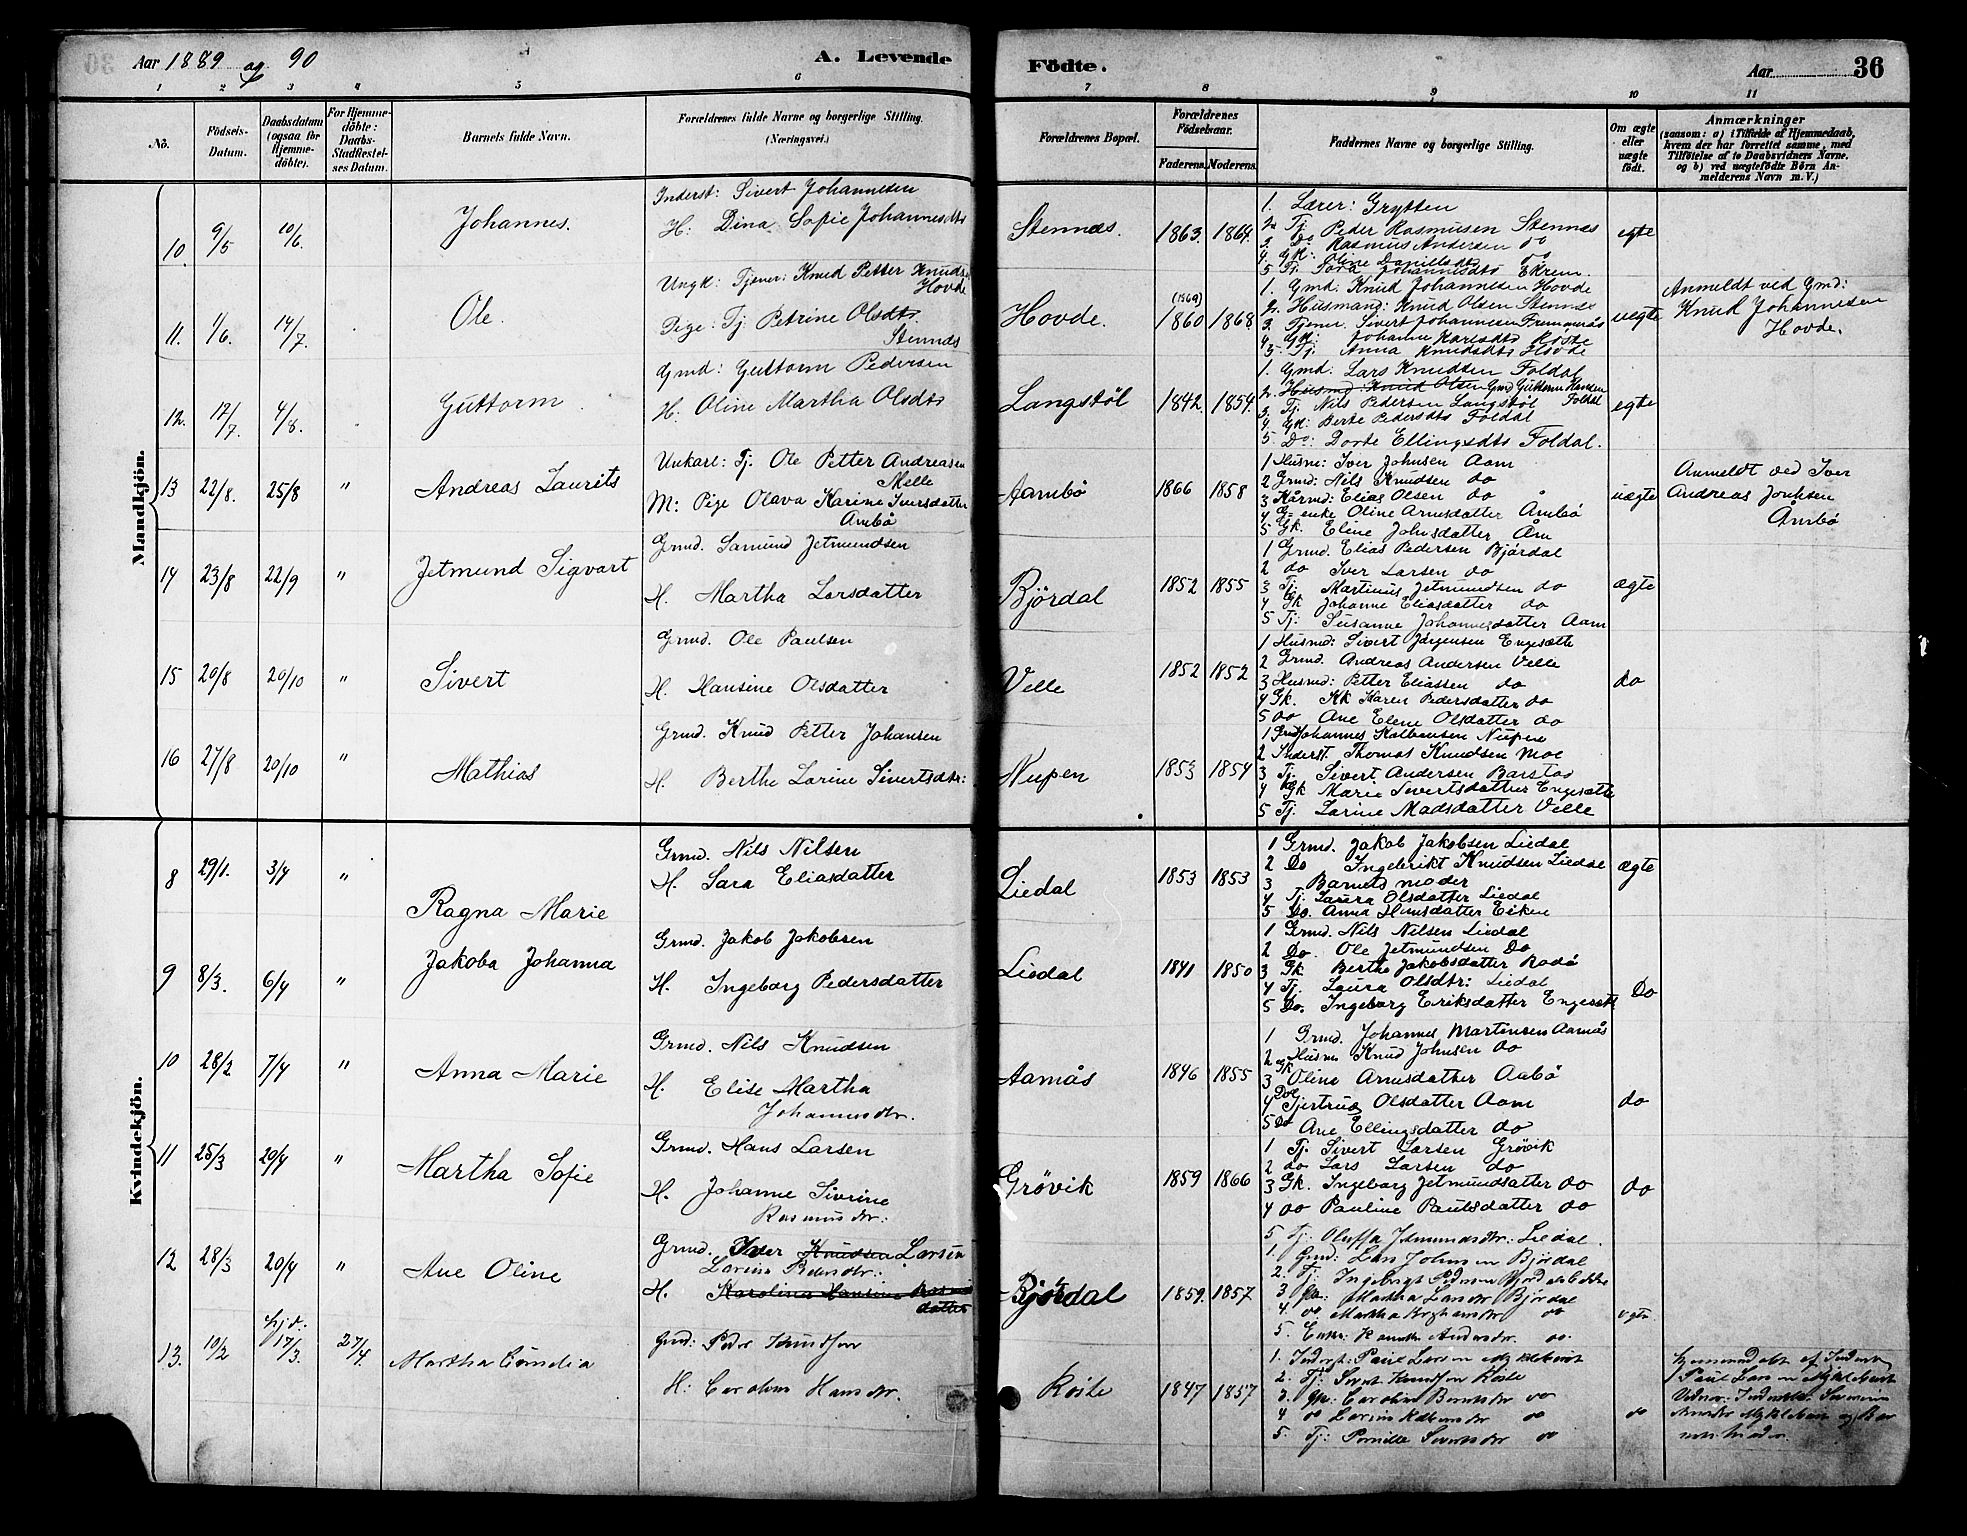 Aar 1889 og 90
A. Levende
Födte.
Aar
36
1 2 3 4 5 6 7 8 9 10 11
No.
Födsels-Datum.
Daabsdatum (ogsaa for Hjemme-döbte).
For Hjemme-döbte: Daabs-Stadfæstel-ses Datum.
Barnets fulde Navn.
Forældrenes fulde Navne og borgerlige Stilling. (Næringsvei.)
Forældrenes Bopæl.
Forældrenes Födselsaar.
Faderens. Moderens.
Faddernes Navne og borgerlige Stilling.
Om ægte eller uægte födt.
Anmærkninger
(saasom: a) i Tilfælde af Hjemmedaab, hvem der har forrettet samme, med Tilföielse af to Daabsvidners Navne. og b) ved uægtefödte Börn An-melderens Navn m. V.)
Mandkjön.
10. 9/5 10/6. Johannes.
Inderst: Sivert Johannesen
H: Dina Sofie Johannesdts
Stennæs. 1863. 1864.
1. Lærer: Grytten
2. Tj. Peder Rasmusen Stennæs
3. Do Rasmus Andersen do
4. Gk: Oline Danielsdts do
5. Tj. Johannesdts Ekrem.
egte
11. 1/6. 14/7. Ole.
Ungk: Tjener: Knud Petter Knuds. Hovde
Pige: Tj. Petrine Olsdts. Stennæs
Hovde. (1869) 1860 1868.
1. Gmd: Knud Johannesen Hovde
2. Husmand: Knud Olsen Stennæs
3. Tjener. Sivert Johannesen
4. Gk: Johanne Karlsdts Koste
5. Tj. Anna Knudsdts Hovde
uegte
Anmeldt ved Gmd:
Knud Johannesen
Hovde.
12. 17/7. 4/8. Guttorm.
Gmd: Guttorm Pedersen
H: Oline Martha Olsdts
Langstøl 1842. 1854.
1. Gmd: Lars Knudsen Foldal
2. Husmd: Knud Olsen Gmd Guttorm Hansen Foldal
3. Tj. Nils Pedersen Langstøl
4. Gk: Berte Pedersdts Foldal
5. Do: Dorte Ellingsdts Foldal.
egte
13 22/8. 25/8 " Andreas Laurits
Unkarl: Tj. Ole Petter Andreasen Melle
M: Pige Olava Karine Iversdatter Åmbø
Aambø 1866 1858
1 Husm: Iver Johnsen Aam
2 Grmd: Nils Knudsen do
3 Kårmd: Elias Olsen do
4 G= enke Oline Arnesdatter Åmbø
5 Gk. Eline Johnsdatter Åm
uægte
Anmeldt ved Iver
Andreas Jonhsen
Åmbø
14 23/8 22/9 " Jetmund Sigvart
Grmd. Samund Jetmundsen
H. Martha Larsdatter
Björdal 1852 1855
1 Grmd. Elias Pedersen Björdal
2 do Iver Larsen do
3 Tj. Martinus Jetmundsen do
4 Gk Johanne Eliasdatter do
5 Tj: Susanne Johannesdatter Aam
ægte
15 20/8 20/10 " Sivert
Grmd. Ole Paulsen
H. Hansine Olsdatter
Velle 1852 1852
1 Husmd: Sivert Jørgensen Engesætte
2 Grmd. Andreas Andersen Velle
3 Husmd: Petter Eliassen do
4 Gk. Karen Pedersdatter do
5 do Ane Elene Olsdatter do
do
16 27/8 20/10 " Mathias
Grmd. Knud Petter Johansen
H. Berthe Larine Sivertsdtr:
Nupen 1853 1854
1 Grmd Johannes Kolbensen Nupen
2 Inderst. Thomas Knudsen Moe
3 Tj. Sivert Andersen Barstad
4 Gk Marie Sivertsdatter Engesætte
5 Tj. Larine Madsdatter Velle
Kvindekjön.
8 29/1. 3/4 " Ragna Marie
Grmd. Nils Nilsen
H. Sara Eliasdatter
Liedal 1853 1853
1 Grmd. Jakob Jakobsen Liedal
2 Do Ingebrikt Knudsen Liedal
3 Barnets moder
4 Tj. Laura Olsdatter Liedal
5 Do. Anna Hansdatter Eiken
ægte
9 8/3. 6/4 " Jakoba Johanna
Grmd. Jakob Jakobsen
H. Ingeborg Pedersdatter
Liedal 1841 1850
1 Grmd. Nils Nilsen Liedal
2 Do. Ole Jetmundsen Do
3 Gk Berthe Jakobsdatter
4 Tj. Laura Olsdtr: Liedal
5 Do. Ingeborg Eriksdatter Engesæt
Do
10 28/2 7/4 " Anna Marie
Grmd. Nils Knudsen
H. Elise Martha Johannesdtr.
Aamås 1846 1855
1 Grmd. Johannes Martinsen Aamås
2 Husm Knud Johnsen do
3 Gk Oline Arnesdatter Aabø
4 Do Gjertrud Olsdatter Aam
5 Do Ane Ellingsdatter do
do
11 25/3 20/4 " Martha Sofie
Grmd. Hans Larsen
H. Johanne Sivrine Rasmusdtr:
Grövik 1859 1866
1 Tj. Sivert Larsen Grövik
2 do Lars Larsen do
3 Gk. Ingeborg Jetmundsdatter do
4 do Pauline Paulsdatter do
5, Tj: Oluffa Jetmundsdtr: Liedal.
do
12 28/3 20/4 " Ane Oline
Grmd. Iver Knudsen Larsen
Larine Pedersdtr:
H. Karolina Hansine Rasmusdatter
Björdal 1859. 1857
1. Gmd: Lars Johnsen Björdal
2. Tj: Ingebrigt Pedersen
3 Gk: Martha Larsdtr Björdal
4. do Martha do
5. Andersdtr. do.
egte
13. 10/2 hj.d: 17/3. 27/4. Martha Cornelia
Gmd: Peder Knudsen
H: Caroline Hansdtr.
Koste 1847 1857
1. Inderst: Paul Larsen Myklebust
2. Tj: Sivert Knudsen Koste
3. Gk: Caroline do
4 do Larine do
5. Tj: Pernille Sivertsdtr do
do
Hjemmedøbt af Inderst
Paul Larsen Myklebust